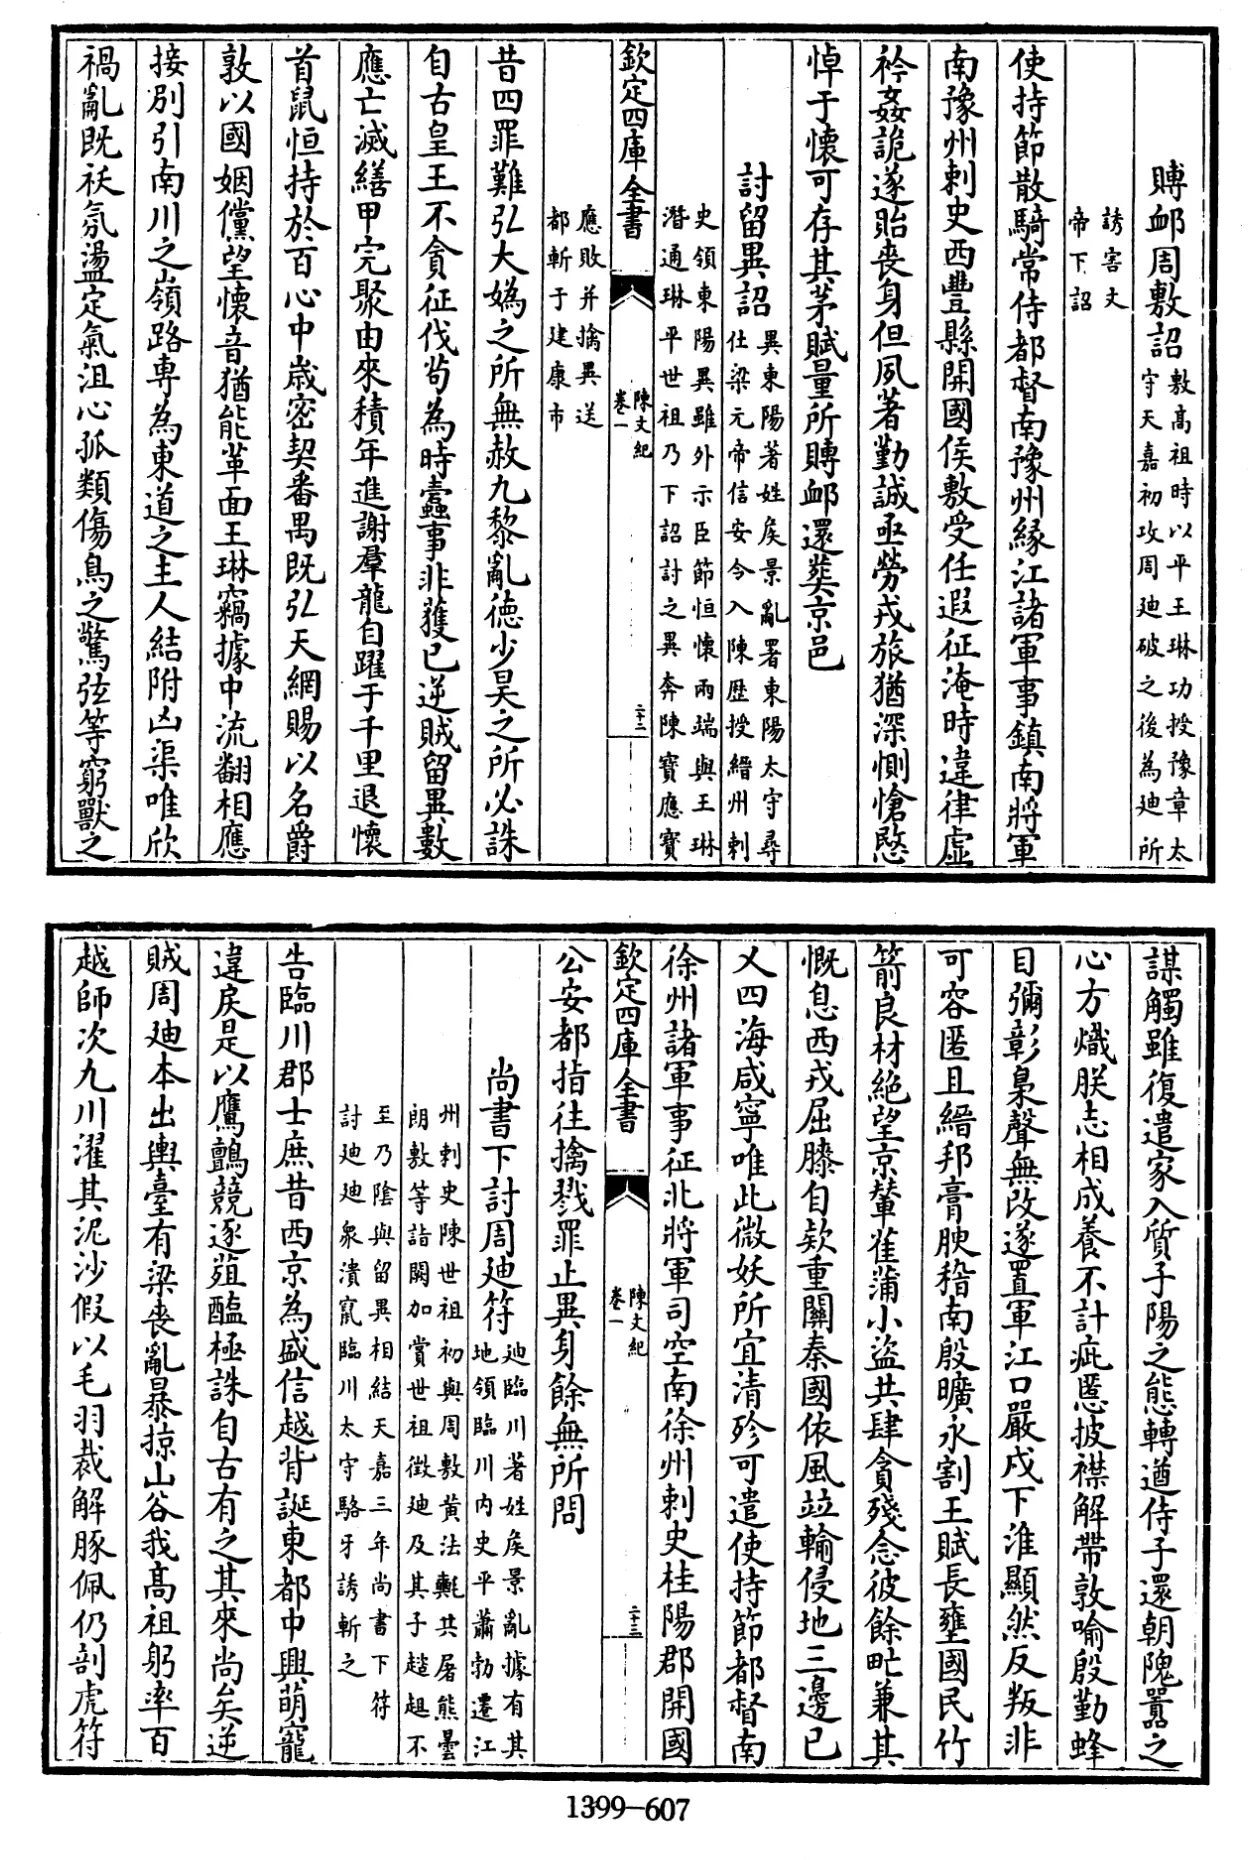 賻卹周敷詔敷髙祖時以平王琳功授豫章太
守天嘉初攻周廸破之後為廸所
誘害文
帝下詔
使持節散騎常侍都督南豫州縁江諸軍事鎮南將軍
南豫州刺史西豐縣開國侯敷受任遐征淹時違律虚
衿姦詭遂貽喪身但夙著勤誠亟勞戎旅猶深惻愴愍
悼于懐可存其茅賦量所賻卹還葬京邑
討留異詔異東陽著姓矦景亂署東陽太守尋
仕梁元帝信安令入陳歴授縉州刺
史領東陽異雖外示臣節恒懐兩端與王琳
潛通琳平世祖乃下詔討之異奔陳寳應寳
欽定四庫全書
陳文紀
卷一
二十二
應敗并擒異送
都斬于建康市
昔四罪難弘大媯之所無赦九黎亂徳少昊之所必誅
自古皇王不貪征伐茍為時蠧事非獲已逆賊留異數
應亡滅繕甲完聚由來積年進謝羣龍自躍于千里退懷
首鼠恒持於百心中歳密契番禺既弘天網賜以名爵
敦以國姻儻望懷音猶能革面王琳竊據中流翻相應
接别引南川之嶺路専為東道之主人結附凶渠唯欣
禍亂既祅氛盪定氣沮心孤類傷鳥之驚弦等窮獸之
謀觸雖復遣家入質子陽之態轉遒侍子還朝隗囂之
心方熾朕志相成養不計疵慝披襟解帶敦喻殷勤蜂
目彌彰梟聲無改遂置軍江口嚴戍下淮顯然反叛非
可容匿且縉邦膏腴稽南殷曠永割王賦長壅國民竹
箭良材絶望京輦萑蒲小盗共肆貪殘念彼餘甿兼其
慨息西戎屈膝自欵重關秦國依風竝輸侵地三邊已
乂四海咸寧唯此微妖所宜清殄可遣使持節都督南
徐州諸軍事征北將軍司空南徐州刺史桂陽郡開國
欽定四庫全書
陳文紀
卷一
二十三
公安都指往擒戮罪止異身餘無所問
尚書下討周廸符廸臨川著姓矦景亂據有其
地領臨川内史平蕭勃遷江
州刺史陳世祖初與周敷黄法𣰰共屠熊曇
朗敷等詣闕加賞世祖徴廸及其子趑趄不
至乃隂與留異相結天嘉三年尚書下符
討廸廸衆潰竄臨川太守駱牙誘斬之
告臨川郡士庶昔西京為盛信越背誕東都中興萌寵
違戾是以鷹鸇競逐葅醢極誅自古有之其來尚矣逆
賊周廸本出輿臺有梁喪亂暴掠山谷我髙祖躬率百
越師次九川濯其泥沙假以毛羽裁解豚佩仍剖虎符
1399—607